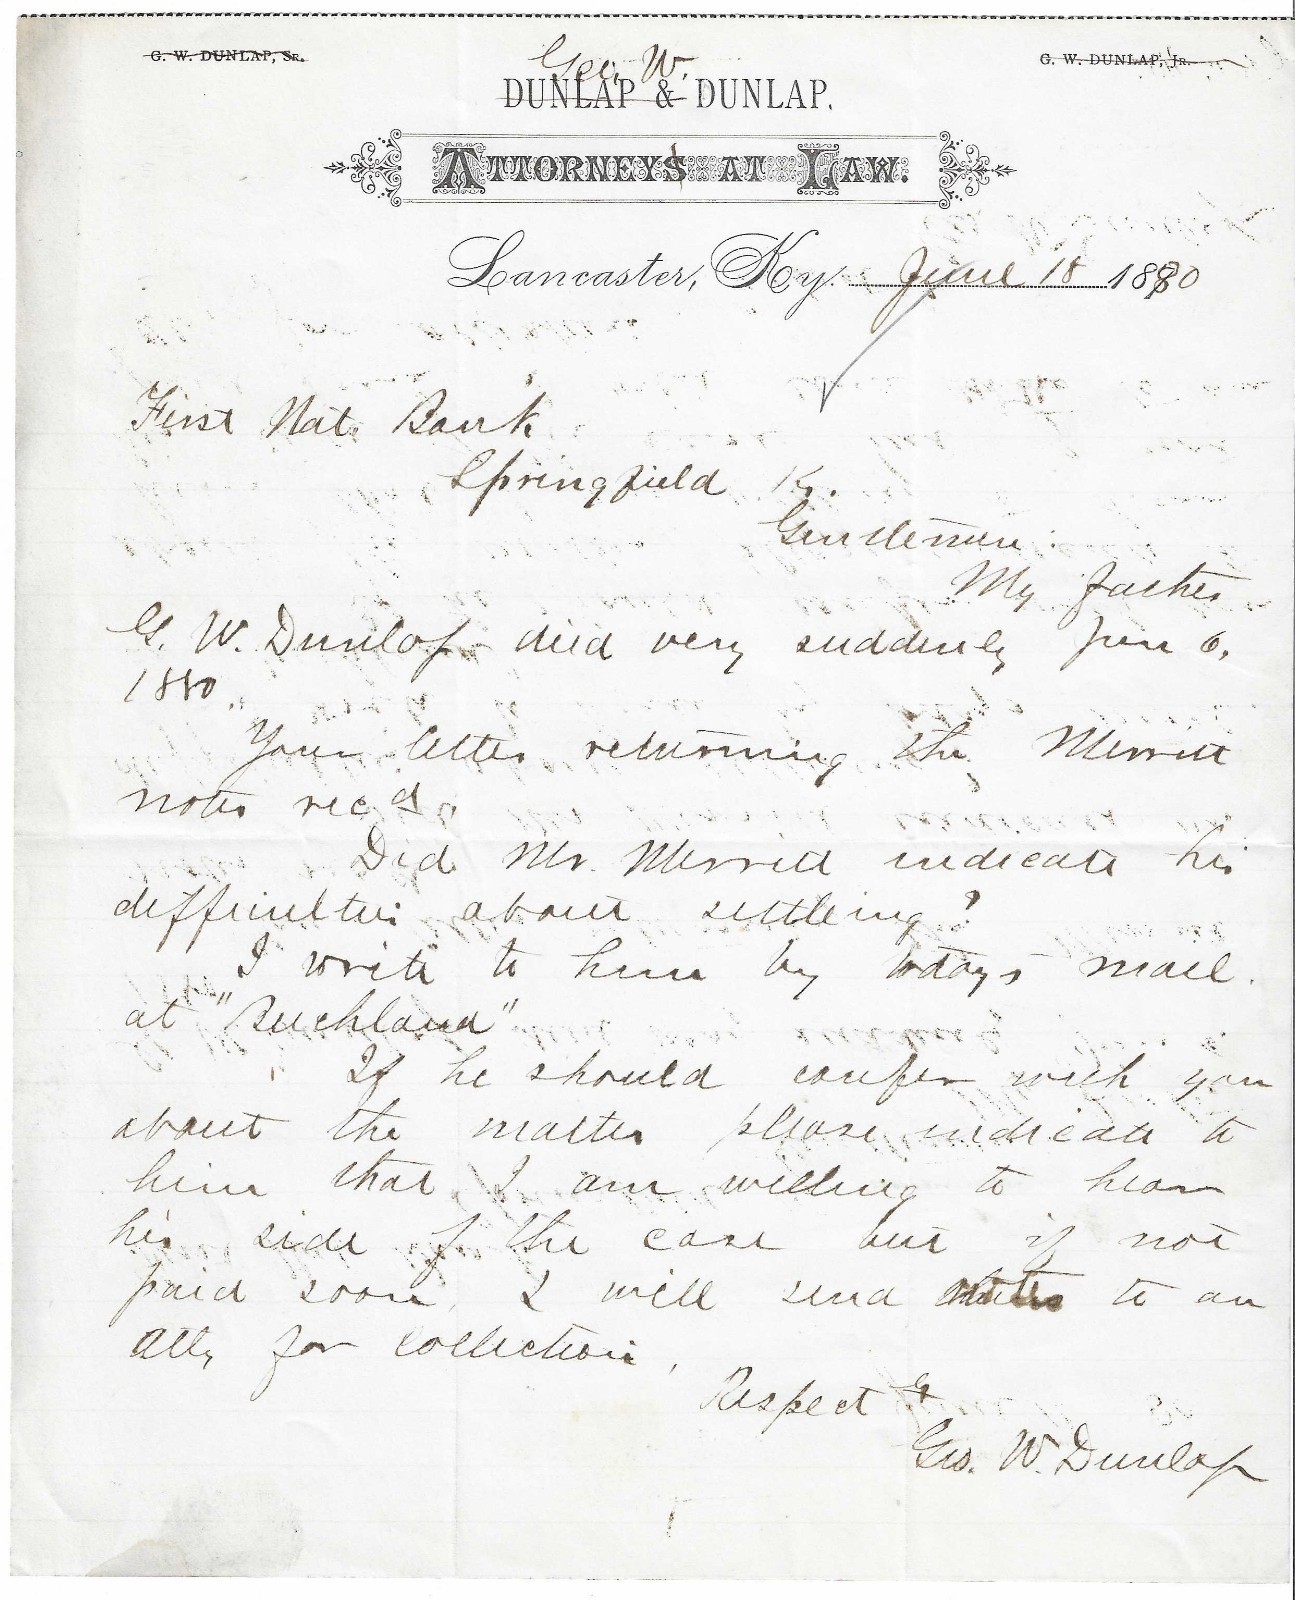 G. W. DUNLAP, SR.
G. W. DUNLAP, JR.
Geo. W.
DUNLAP & DUNLAP.
ATTORNEYS AT LAW.
Lancaster, Ky. June 18 1880
First Nat. Bank
Springfield Ky.
Gentlemen:
My father
G. W. Dunlap died very suddenly Jun 6,
1880.
Your letter returning the Merritt
notes rec'd.
Did Mr. Merritt indicate his
difficulties about settling?
I write to him by todays mail
at "Buchland"
If he should confer with you
about the matter please indicate to
him that I am willing to hear
his side of the case but if not
paid soon, I will send to an
atty for collection,
Respect fy
Geo. W. Dunlap